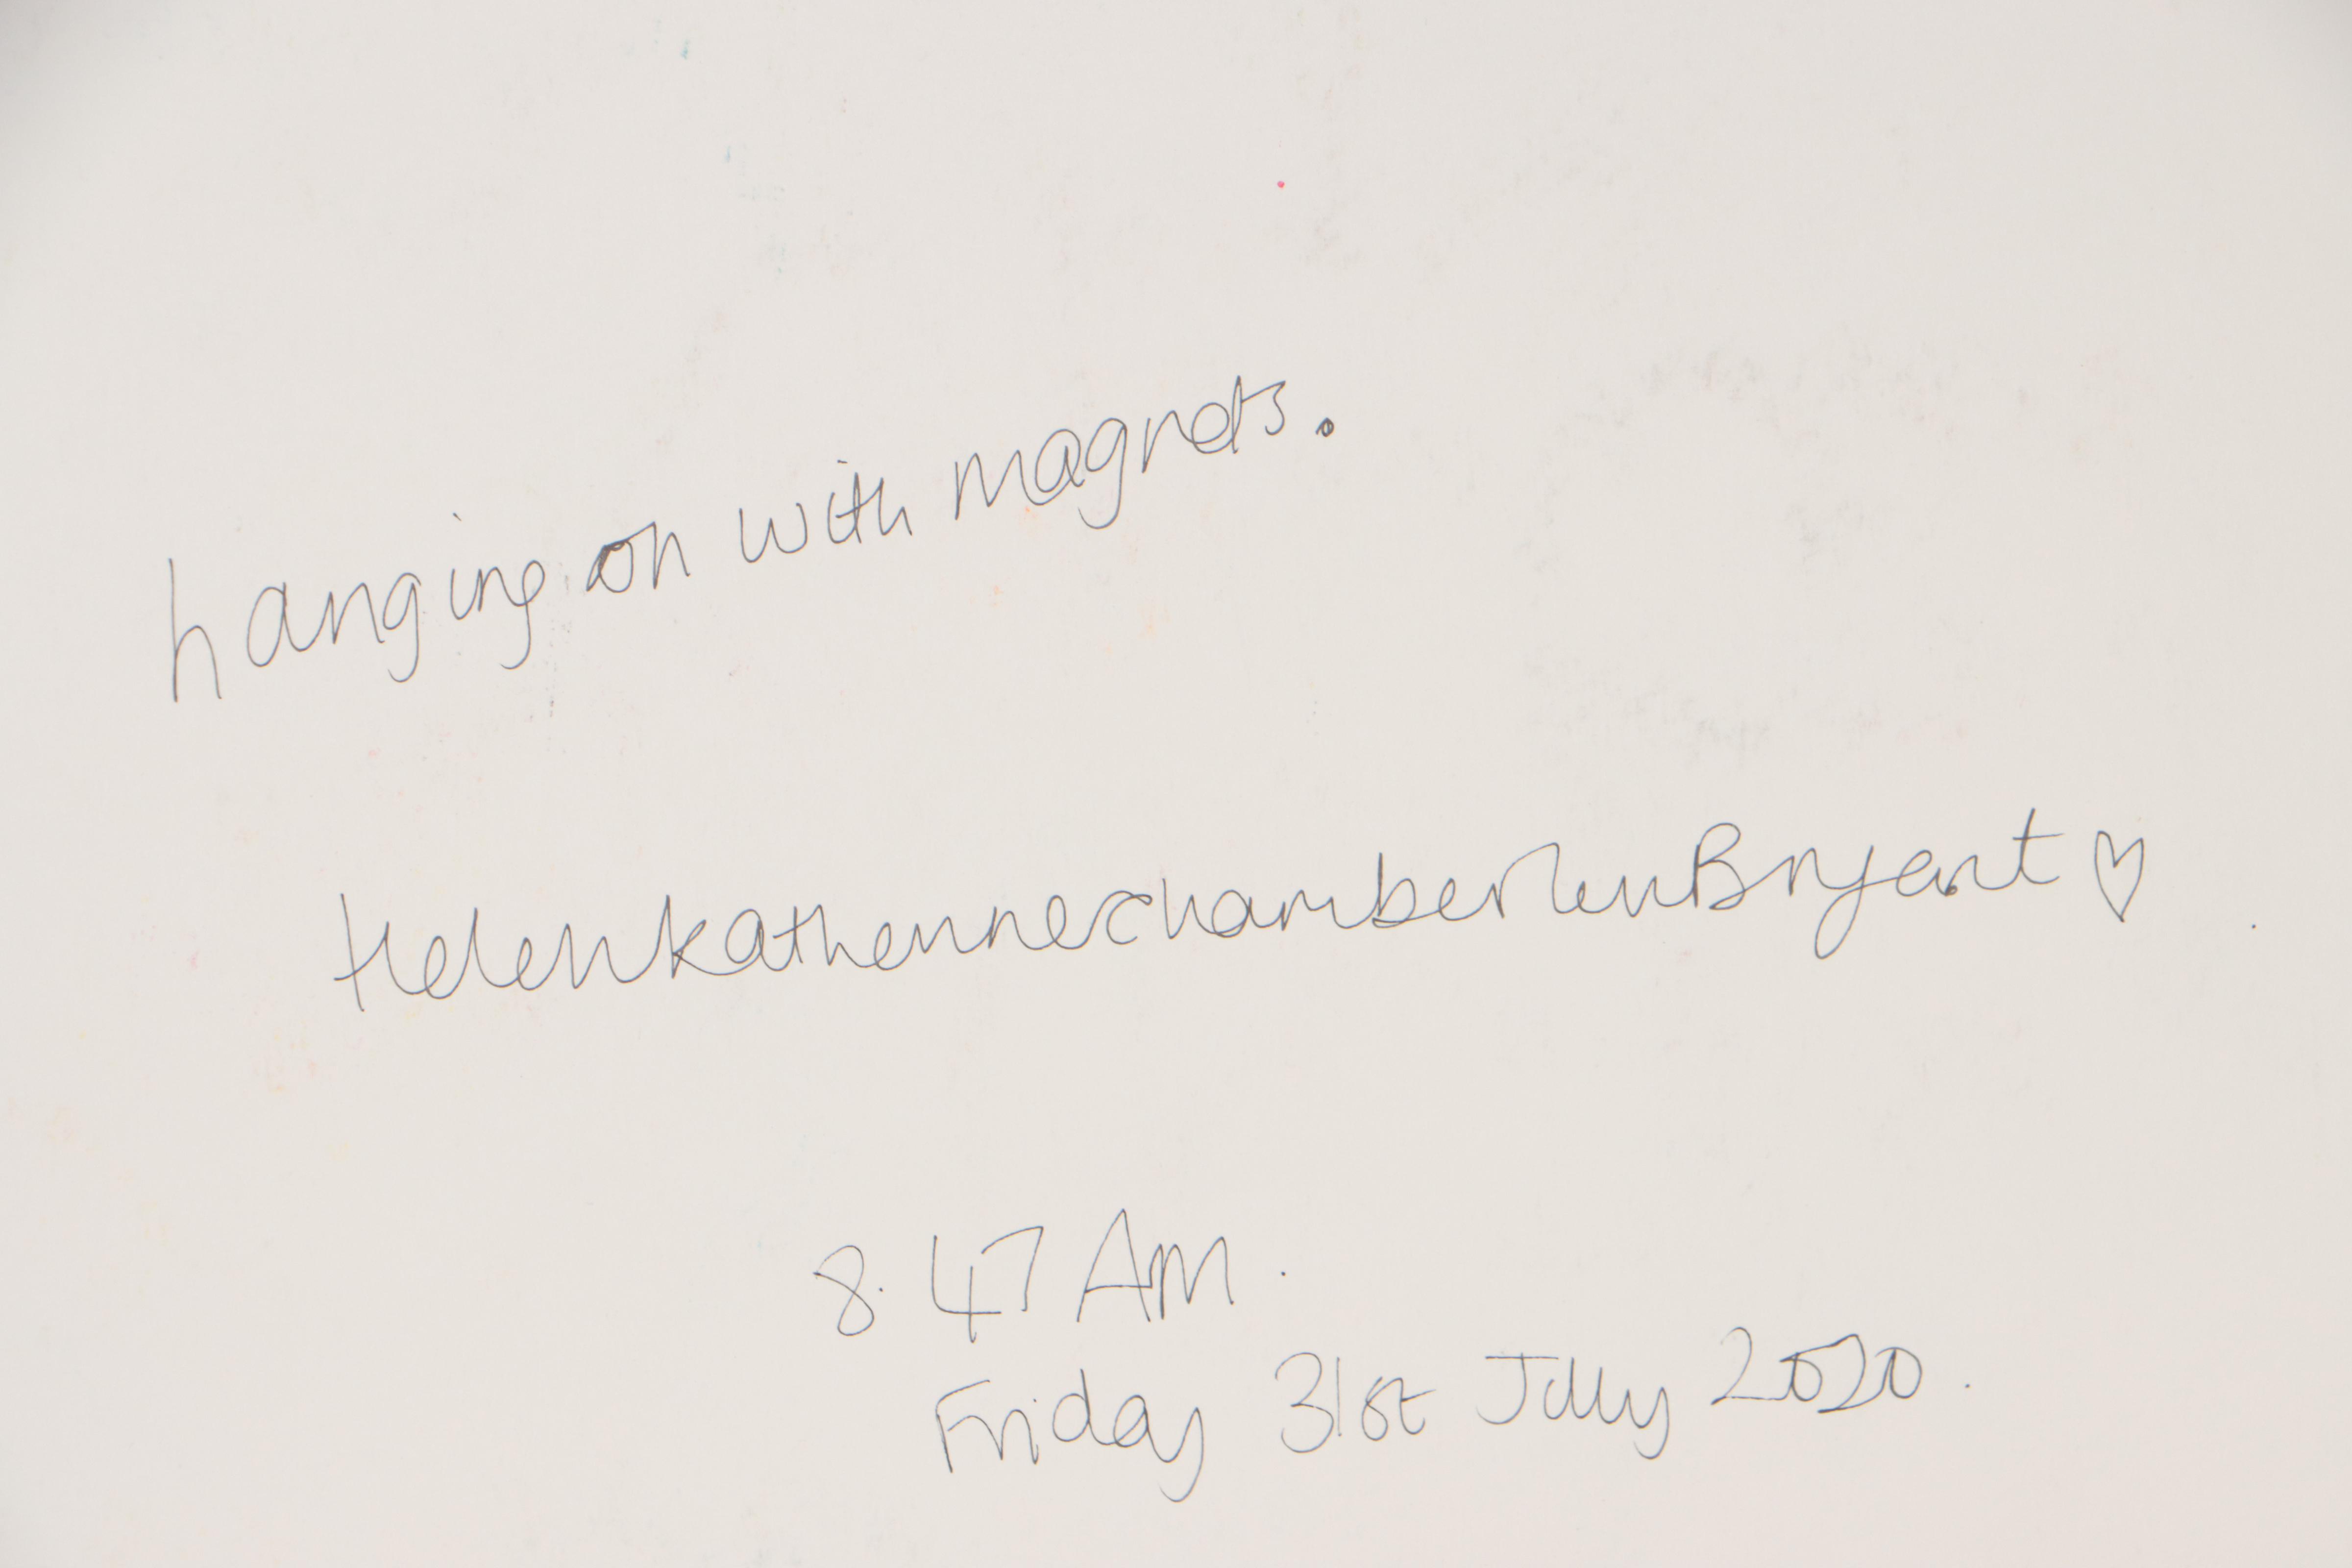 hanging on with magnets.
HelenkatherinechamberlenBryant ♡
8.47 AM.
Friday 31st July 2020.